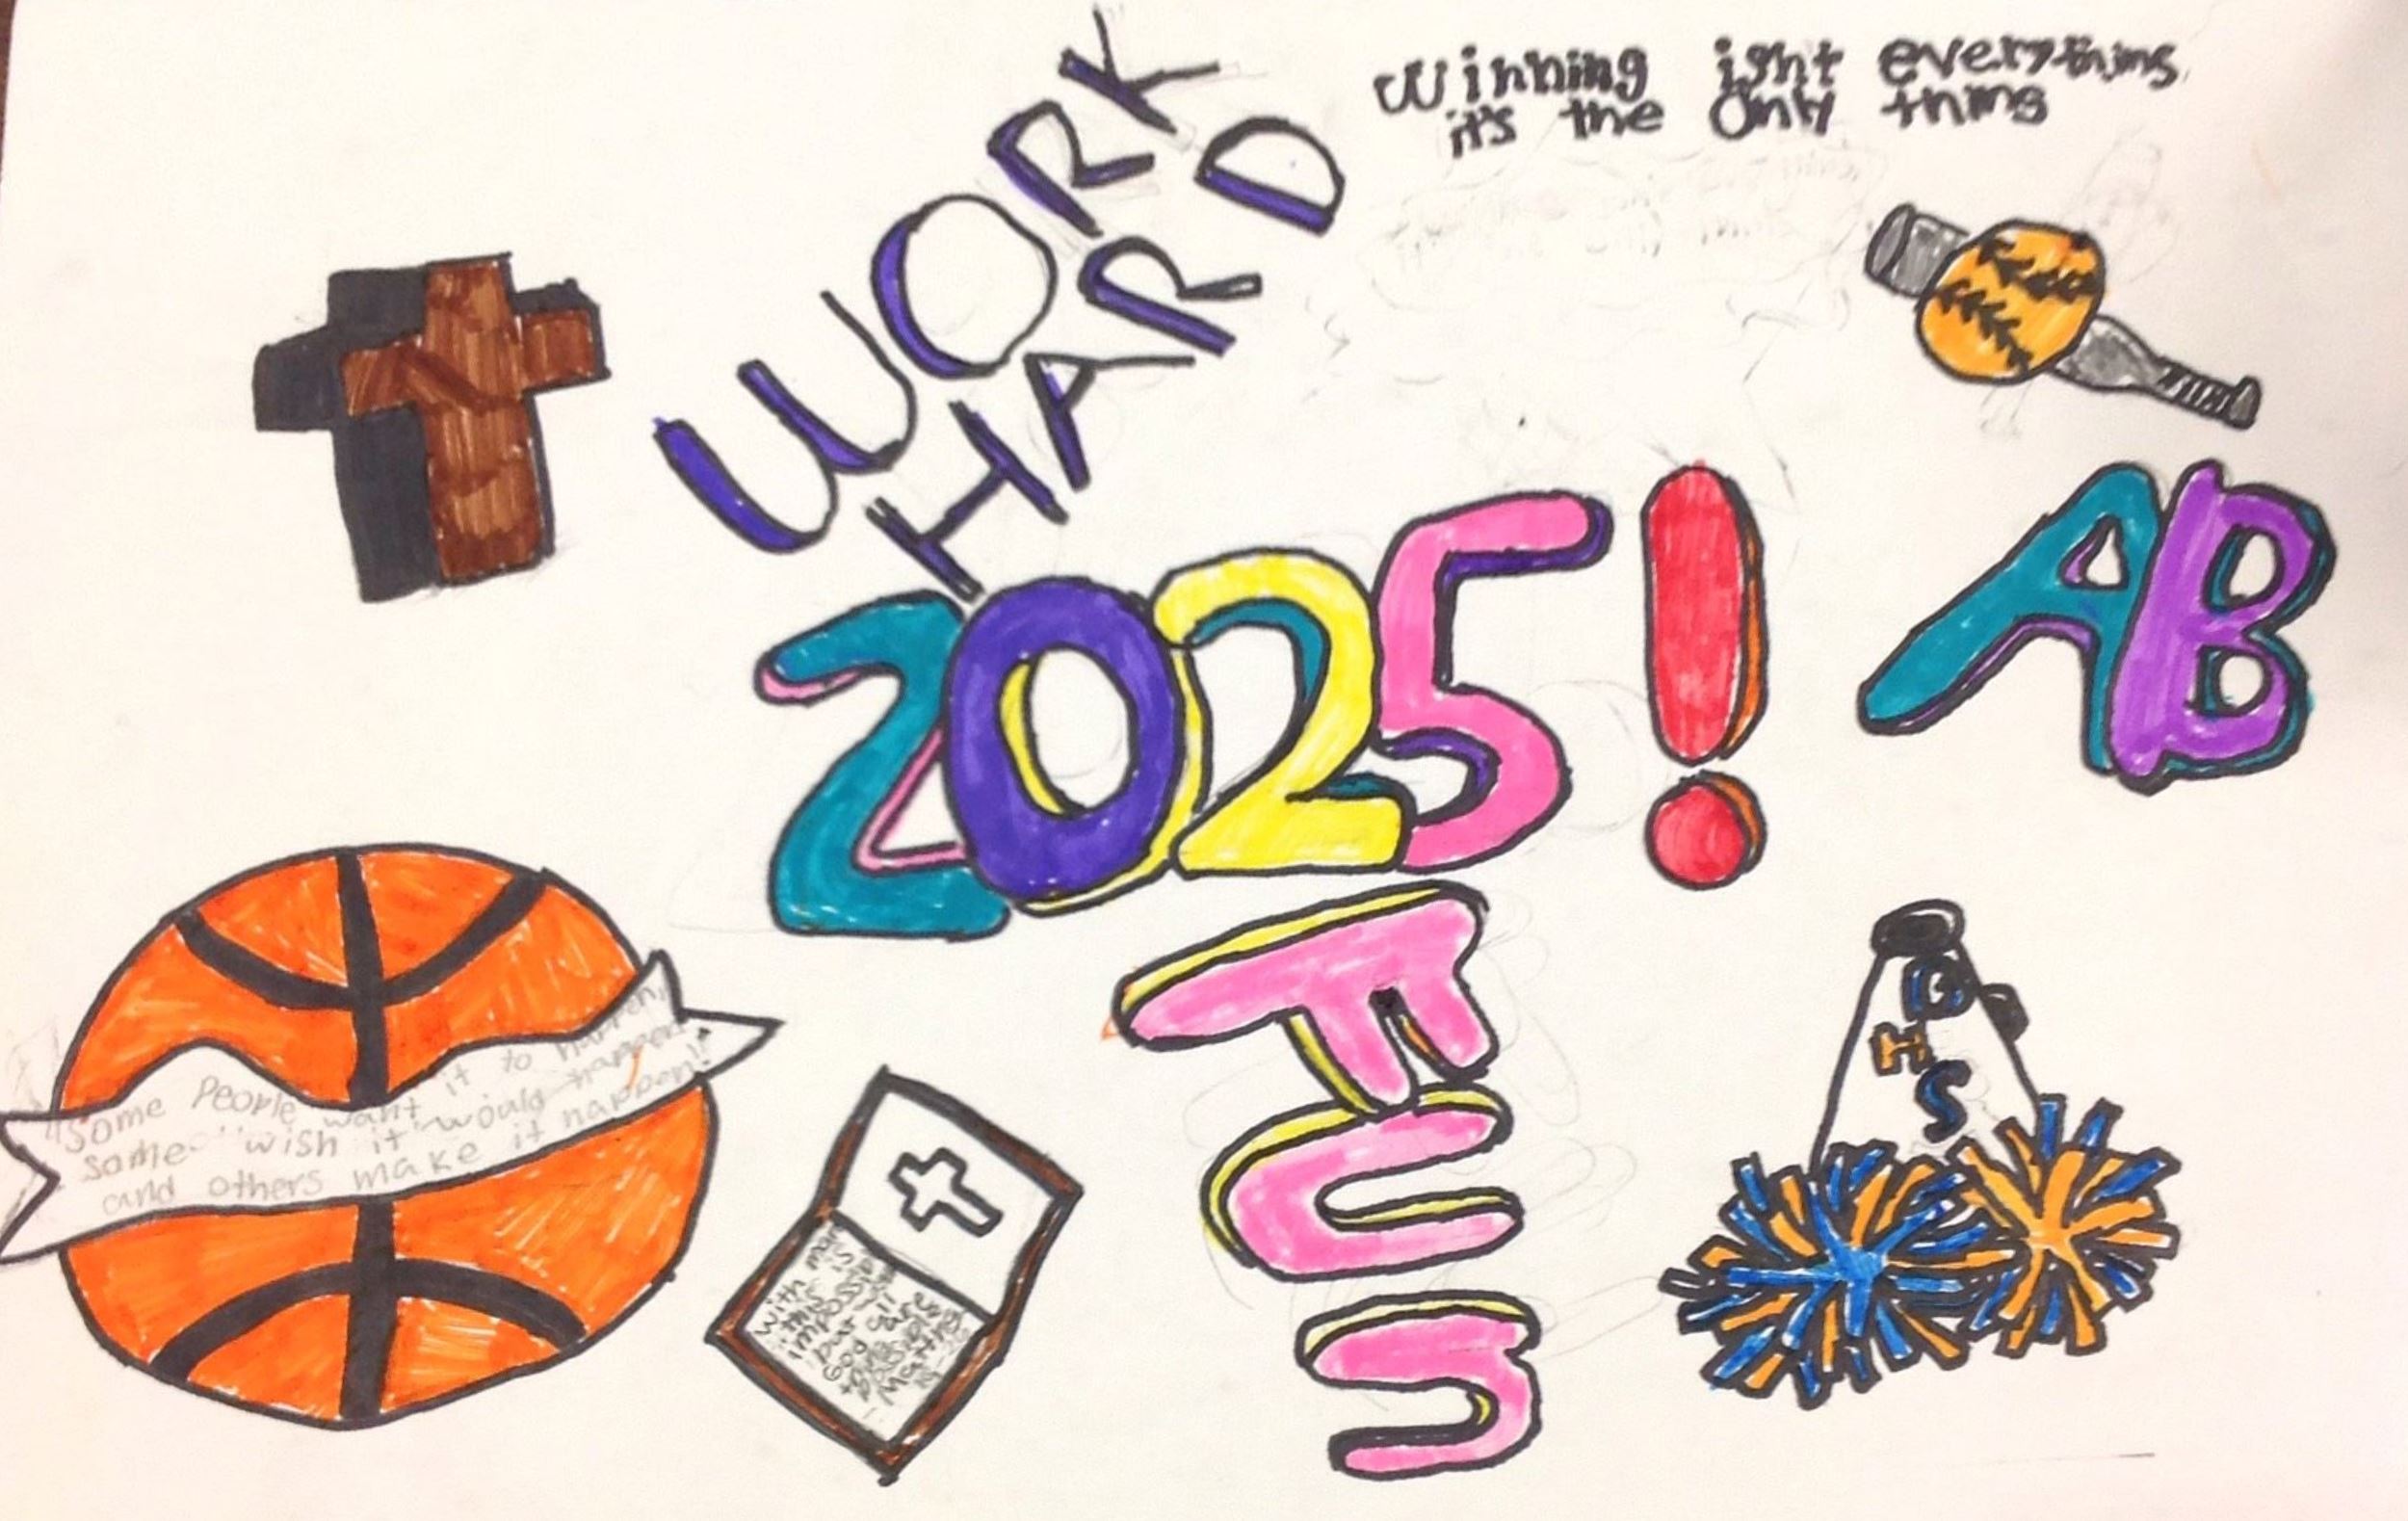 WORK
HARD
Winning isnt everything
it's the Only thing
2025!
AB
"Some People want it to happen,
some "wish it would happen
and others make it happen!"
FUN
with man
this is
impossible
but with
God all
Matthew
G
H
S